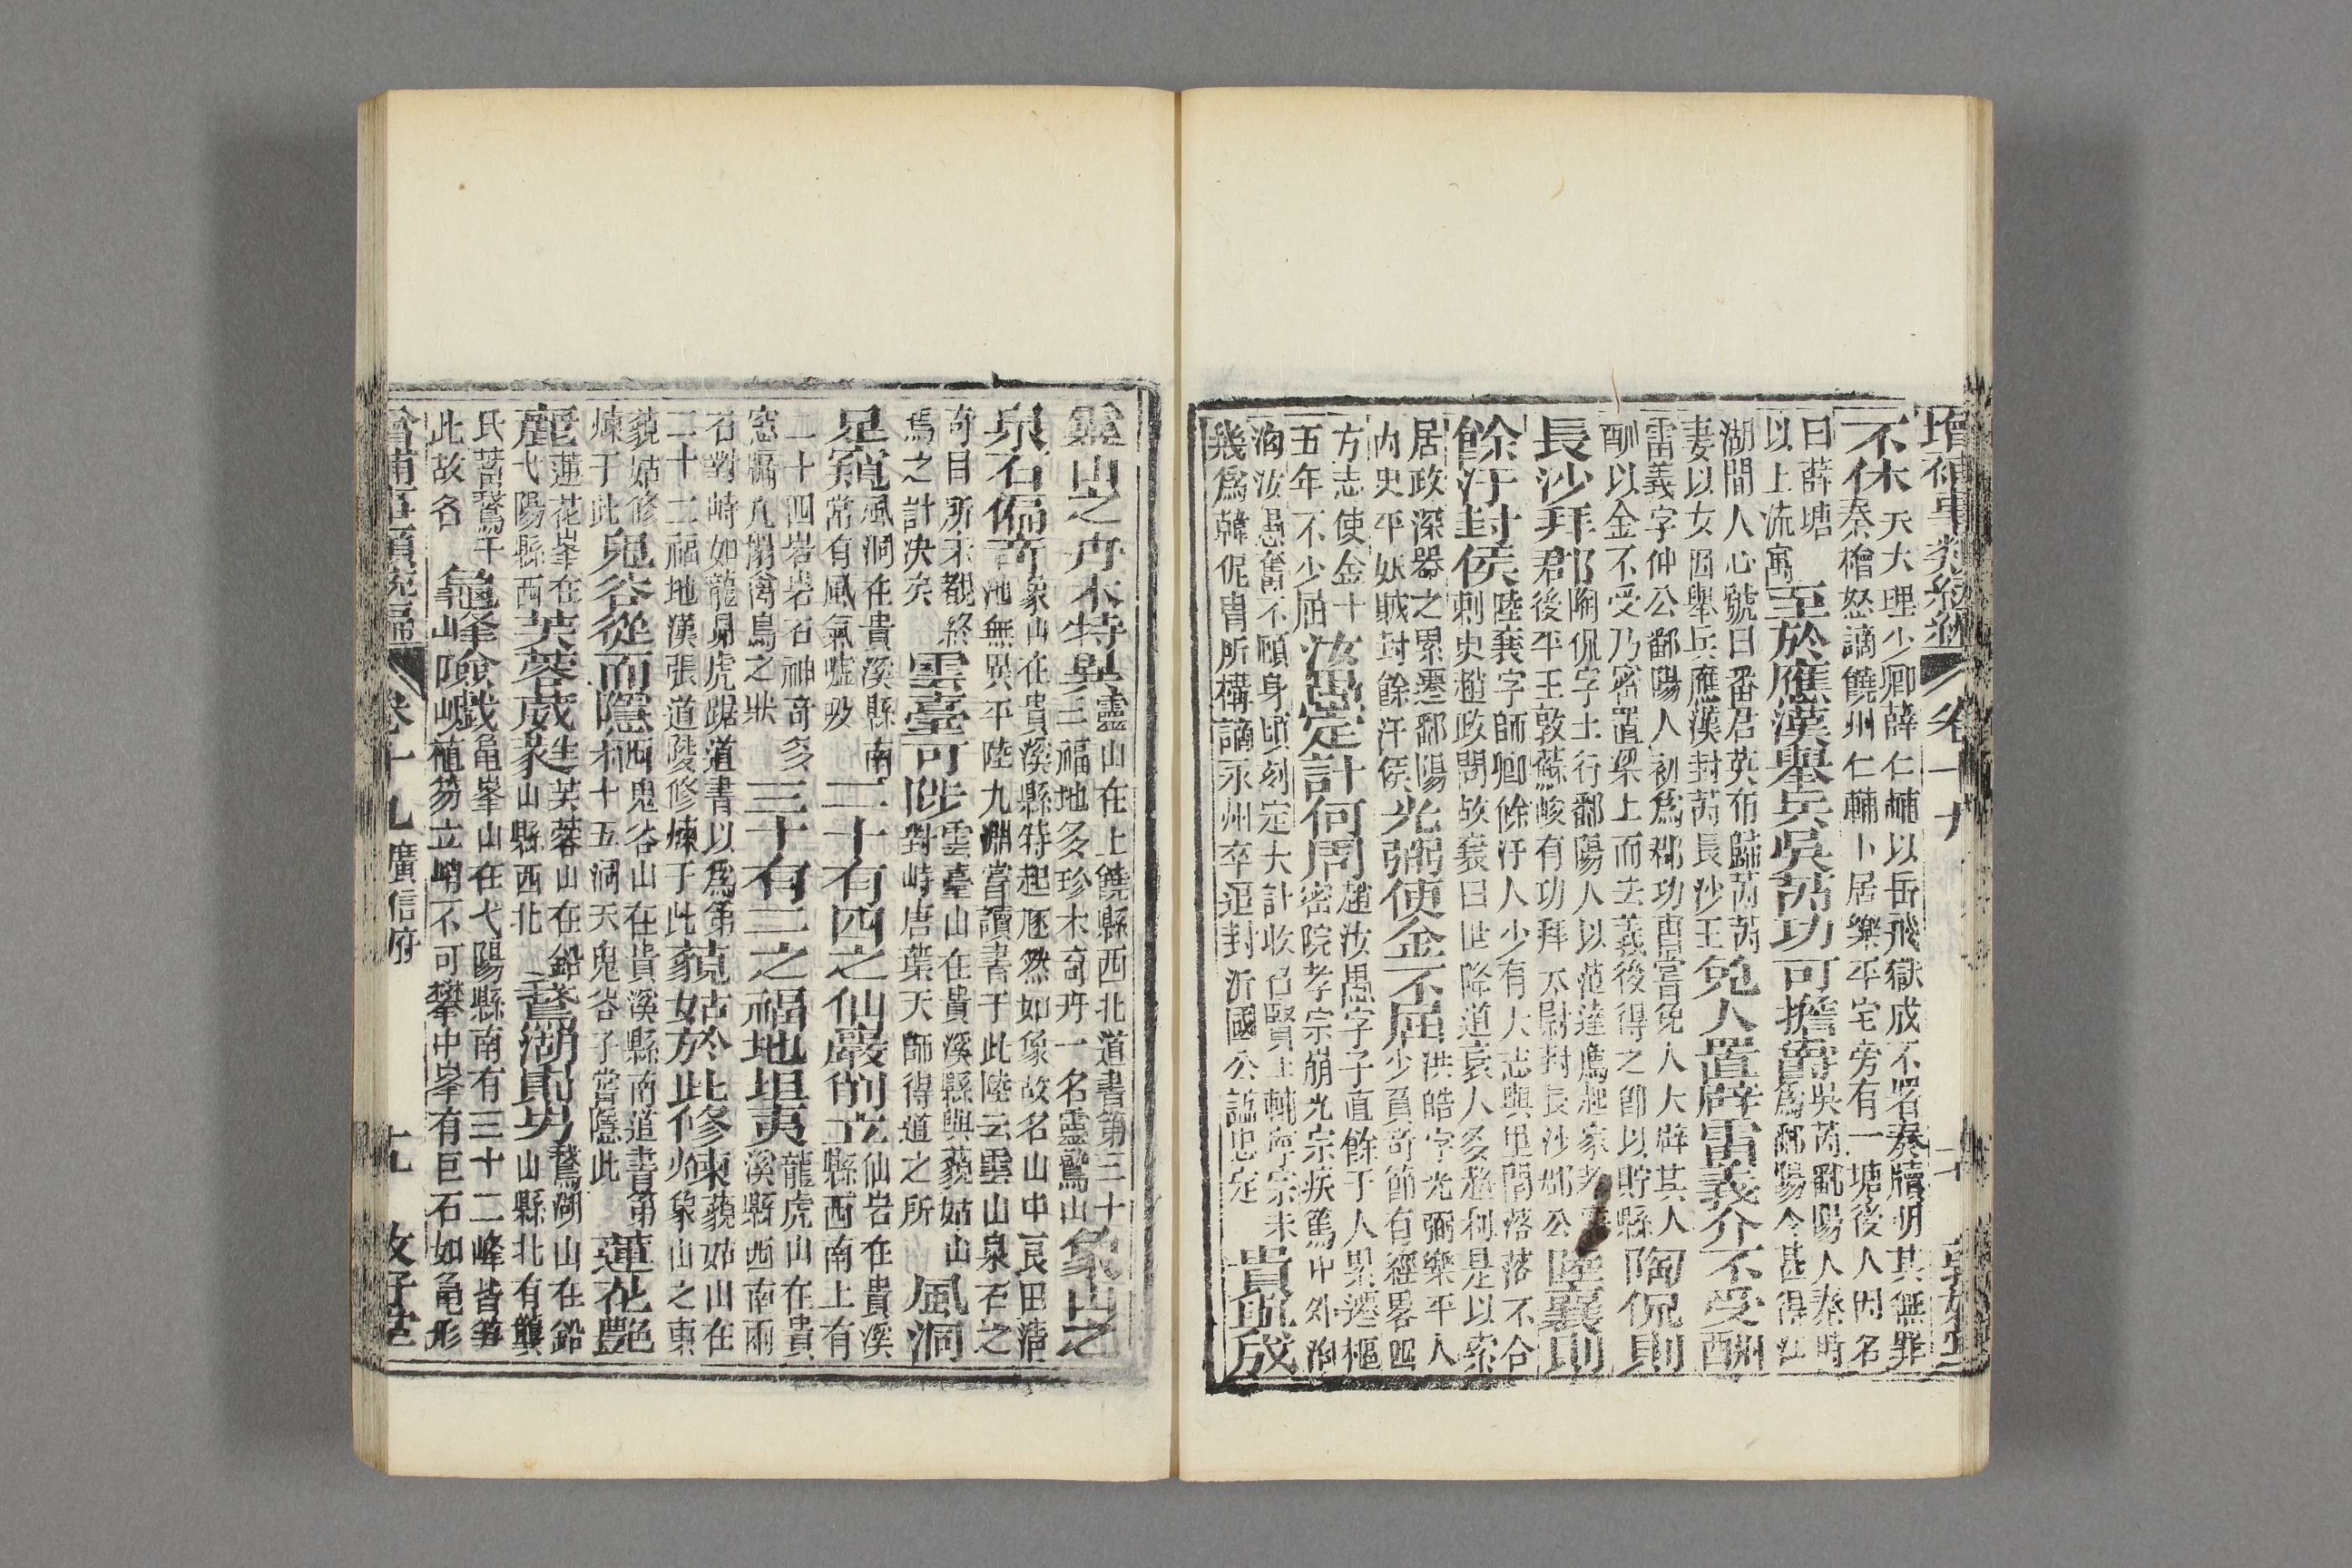 增補事類統編 卷十九 敦好堂
不休
天大理少卿薛仁輔以岳飛獄成不署奏牘明其無罪
秦檜怒謫饒州仁輔卜居樂平宅旁有一塘後人因名
曰薛塘
以上流寓
至於應漢舉兵吳芮功可擔爵
吳芮鄱陽人秦時
爲鄱陽令甚得江
湖間人心號曰番君英布歸芮芮
妻以女因舉兵應漢封芮長沙王
免人置辟雷義介不受酬
雷義字仲公鄱陽人初爲郡功曹嘗免人大辟其人
酬以金不受乃密置梁上而去義後得之卽以貯縣
陶侃則
長沙拜郡
陶侃字士行鄱陽人以范逵薦起家孝
君後平王敦蘇峻有功拜太尉封長沙郡公
陸襄則
餘汙封侯
陸襄字師卿餘汙人少有大志與里閭落落不合
刺史趙政問故襄曰世降道衰人多趨利是以索
居政深器之累遷鄱陽
內史平妖賊封餘汙侯
光弼使金不屈
洪皓字光弼樂平人
少負奇節有經畧四
方志使金十
五年不少屈
汝愚定計何周
趙汝愚字子直餘干人累遷樞
密院孝宗崩光宗疾篤中外洶
洶汝愚奮不顧身頃刻定大計收召賢士輔寧宗未
幾爲韓侂冑所構謫永州卒追封沂國公諡忠定
貴與成
靈山之卉木特異
靈山在上饒縣西北道書第三十
三福地多珍木奇卉一名靈鷲山
象山之
泉石偏奇
象山在貴溪縣特起然如象故名山中良田清
池無異平陸九淵嘗讀書于此陸云雲山泉石之
奇目所未覩終
焉之計決矣
雲臺可陟
雲臺山在貴溪縣與藐姑山
對峙唐葉天師得道之所
風洞
足窺
風洞在貴溪縣南
常有風氣噓吸
二十有四之仙巖削立
仙岩在貴溪
縣西南上有
二十四岩岩石神奇多
窓牖几棚禽鳥之狀
三十有二之福地坦夷
龍虎山在貴
溪縣西南兩
石對峙如龍昻虎踞道書以爲第
二十二福地漢張道陵修煉于此
藐姑於此修煉
藐姑山在
象山之東
藐姑修
煉于此
鬼谷從而隱栖
鬼谷山在貴溪縣南道書第
十五洞天鬼谷子嘗隱此
蓮花艷
麗
蓮花峯在
弋陽縣西
芙蓉葳蕤
芙蓉山在鉛
山縣西北
鵞湖則
鵞湖山在鉛
山縣北有龔
氏蓄鵞于
此故名
龜峰嶮巇
龜峯山在弋陽縣南有三十二峰皆笋
植笏立峭不可攀中峯有巨石如龜形
增補事類統編 卷十九 廣信府 敦好堂